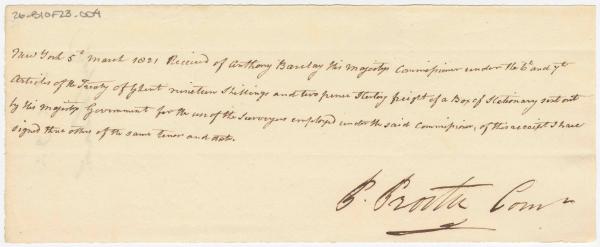 26-B10F23-004
New York 5th March 1821 Received of Anthony Barclay His Majestys Commissioner under the 6th and 7th
Articles of the Treaty of Ghent nineteen Shillings and two pence Sterling freight of a Box of Stationary sent out
by His Majestys Government for the use of the Surveyors employed under the said Commissioner, of this receipt I have
signed three others of the same tenor and date.